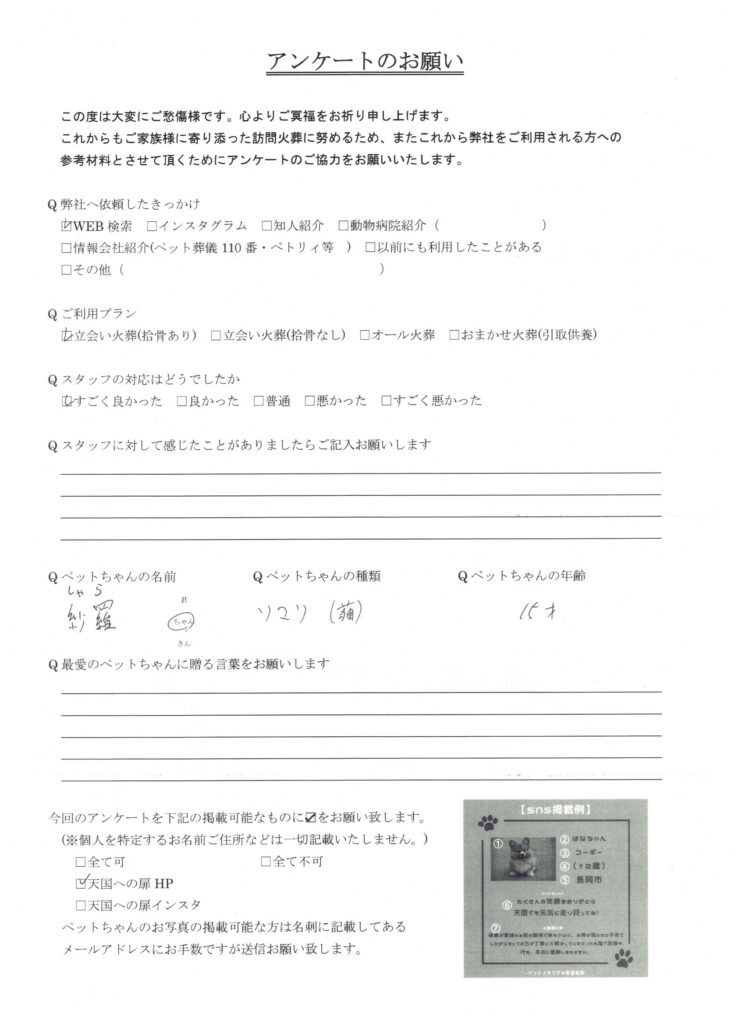 アンケートのお願い
この度は大変にご愁傷様です。心よりご冥福をお祈り申し上げます。
これからもご家族様に寄り添った訪問火葬に努めるため、またこれから弊社をご利用される方への
参考材料とさせて頂くためにアンケートのご協力をお願いいたします。
Q 弊社へ依頼したきっかけ
☑WEB 検索 □インスタグラム □知人紹介 □動物病院紹介（ ）
□情報会社紹介(ペット葬儀 110 番・ペトリィ等 ) □以前にも利用したことがある
□その他（ ）
Q ご利用プラン
☑立会い火葬(拾骨あり) □立会い火葬(拾骨なし) □オール火葬 □おまかせ火葬(引取供養)
Q スタッフの対応はどうでしたか
☑すごく良かった □良かった □普通 □悪かった □すごく悪かった
Q スタッフに対して感じたことがありましたらご記入お願いします
Q ペットちゃんの名前 Q ペットちゃんの種類 Q ペットちゃんの年齢
しゃら
紗羅 君 ちゃん さん ソマリ (猫) 15才
Q 最愛のペットちゃんに贈る言葉をお願いします
今回のアンケートを下記の掲載可能なものに☑をお願い致します。
(※個人を特定するお名前ご住所などは一切記載いたしません。)
□全て可 □全て不可
☑天国への扉 HP
□天国への扉インスタ
ペットちゃんのお写真の掲載可能な方は名刺に記載してある
メールアドレスにお手数ですが送信お願い致します。
【sns掲載例】
① ② はなちゃん
③ コーギー
④ (12歳)
⑤ 長岡市
⑥ たくさんの笑顔をありがとう
天国でも元気に走り回ってね!
⑦